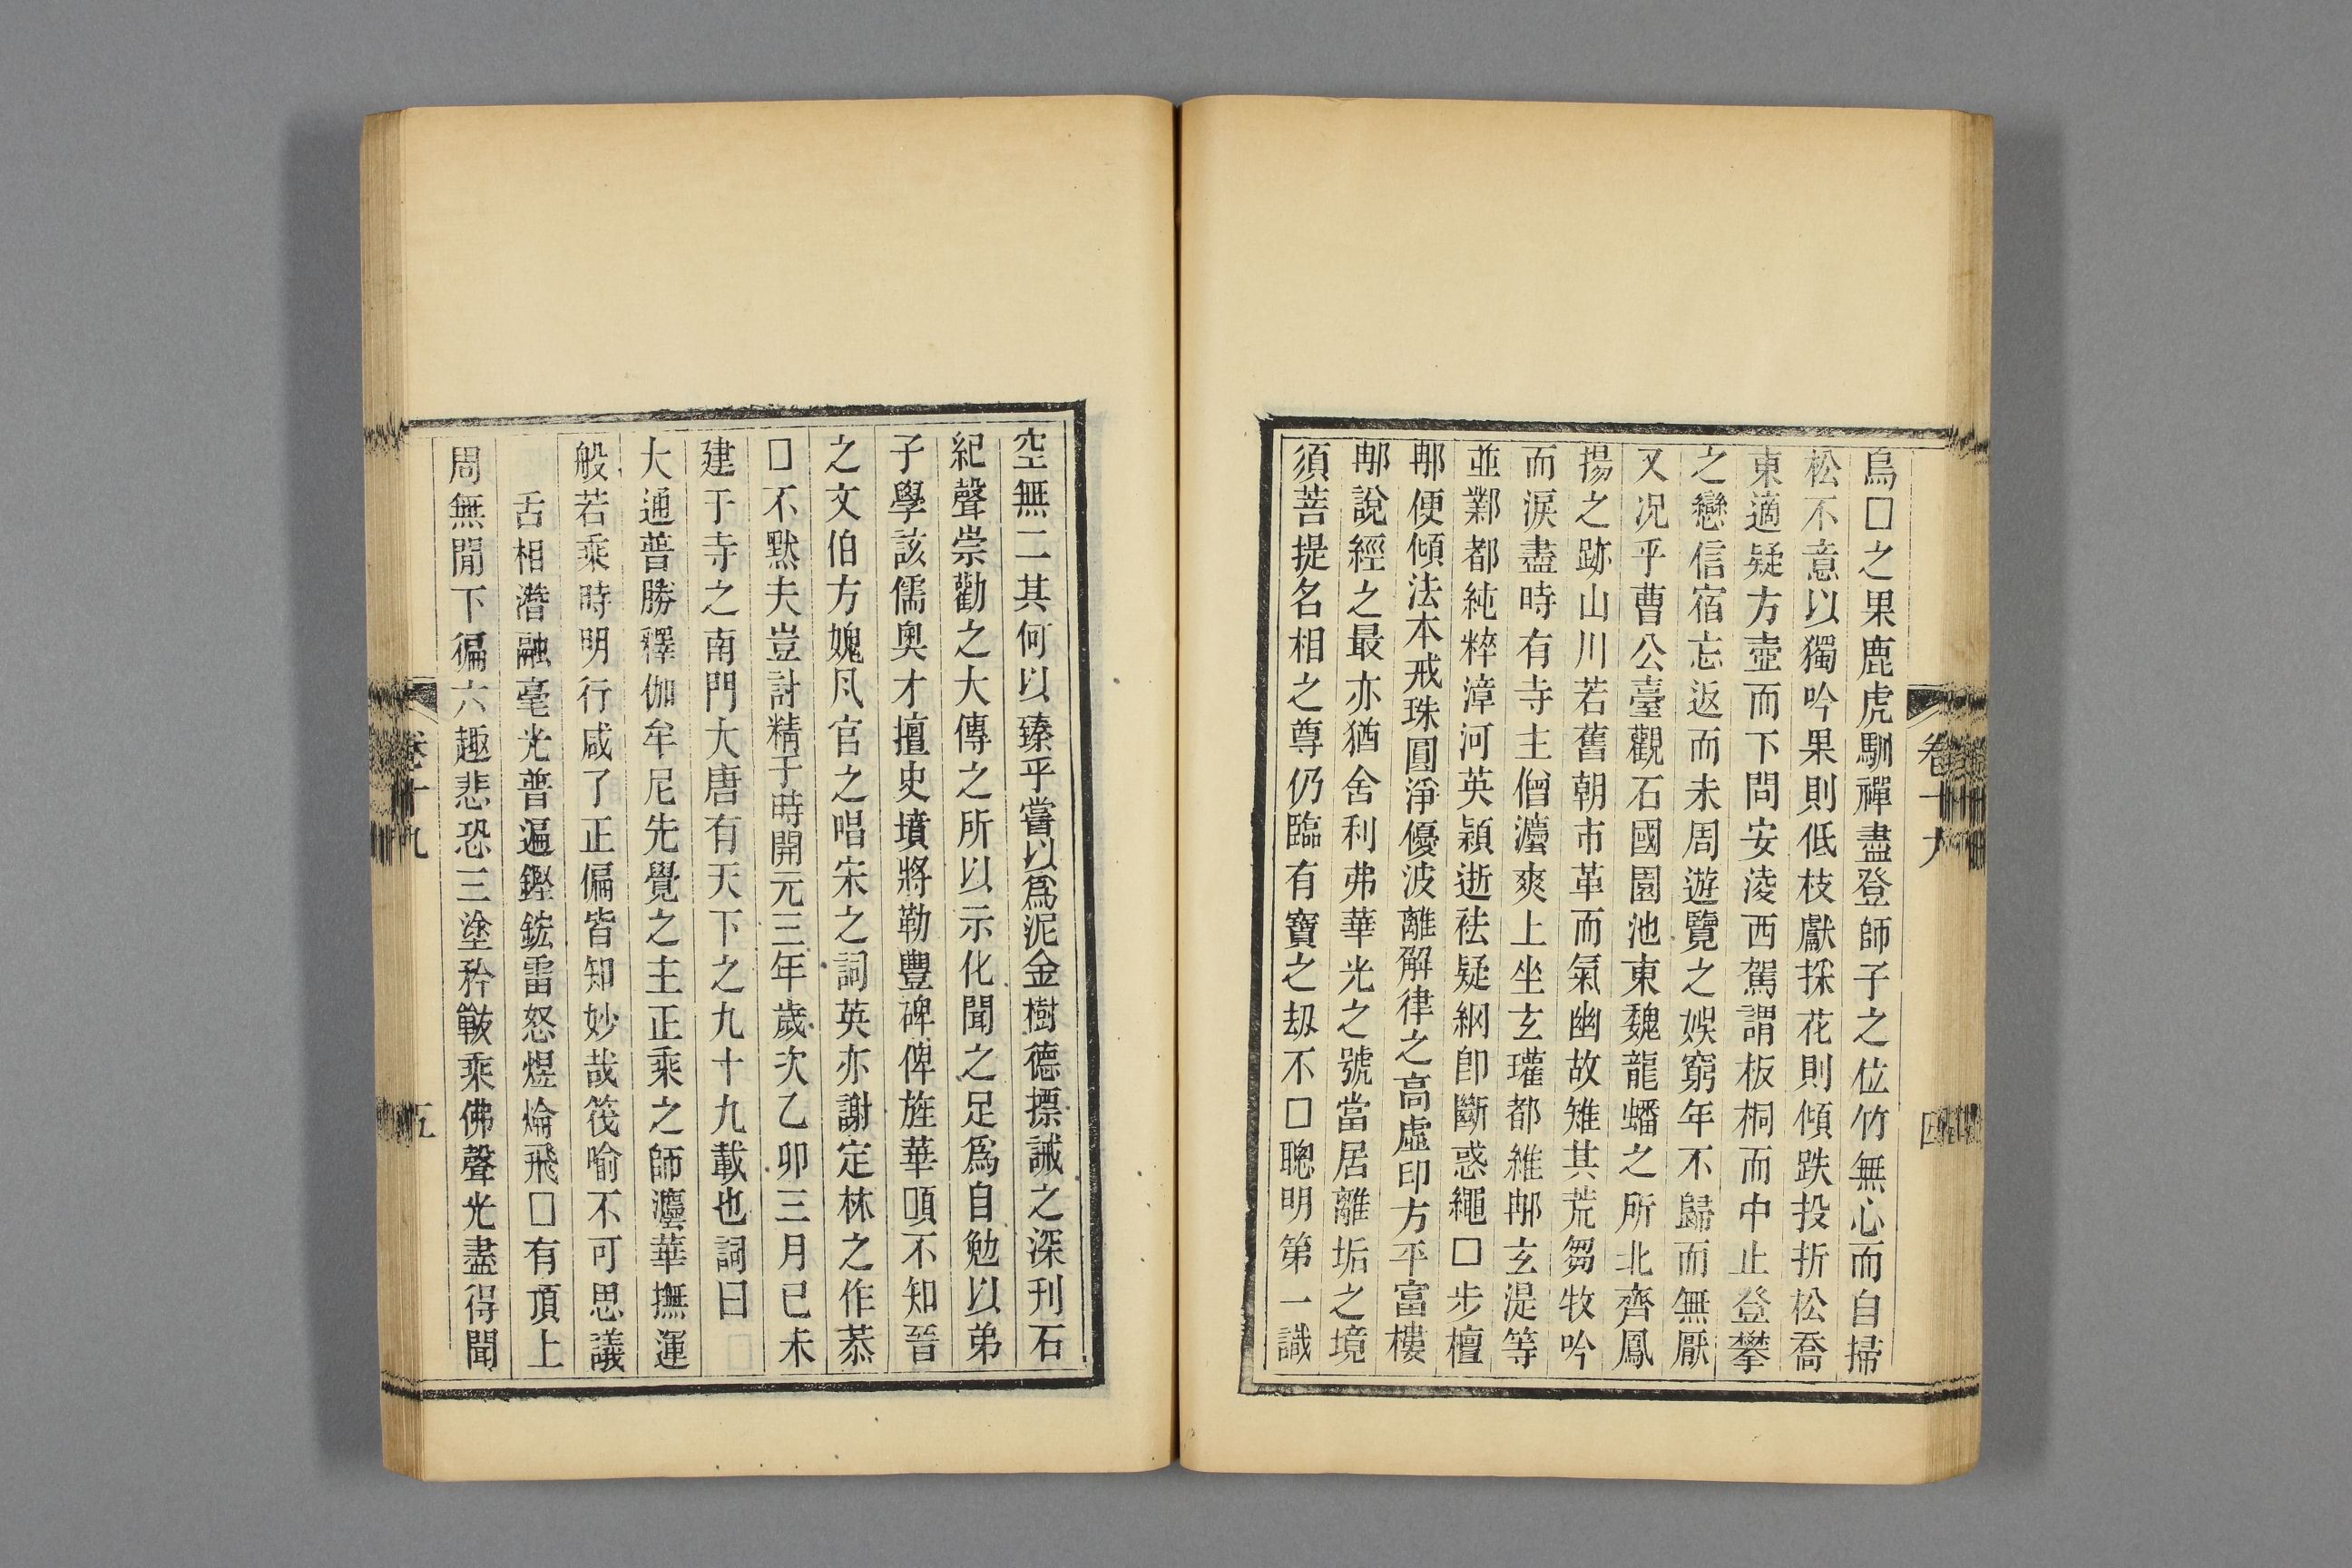 烏□之果鹿虎馴禪盡登師子之位竹無心而自掃
松不意以獨吟果則低枝獻採花則傾跌投折松喬
東適疑方壺而下問安淩西駕謂板桐而中止登攀
之戀信宿忘返而未周遊覽之娛窮年不歸而無厭
又况乎曹公臺觀石國園池東魏龍蟠之所北齊鳳
揚之跡山川若舊朝市革而氣幽故雉其荒芻牧吟
而淚盡時有寺主僧灋爽上坐玄瓘都維𨚗玄湜等
並鄴都純粹漳河英穎逝袪疑網卽斷惑繩□步檀
𨚗便傾法本戒珠圓淨優波離解律之高虛印方平富樓
𨚗說經之最亦猶舍利弗華光之號當居離垢之境
須菩提名相之尊仍臨有寶之刼不□聰明第一識
卷十九
四
空無二其何以臻乎嘗以爲泥金樹德摽誡之深刊石
紀聲崇勸之大傳之所以示化聞之足爲自勉以弟
子學該儒奥才擅史墳將勒豐碑俾旌華頌不知晉
之文伯方媿凨官之唱宋之詞英亦謝定林之作恭
□不默夫豈討精于時開元三年歲次乙卯三月己未
建于寺之南門大唐有天下之九十九載也詞曰
大通普勝釋伽牟尼先覺之主正乘之師灋華撫運
般若乘時明行咸了正偏皆知妙哉筏喻不可思議
舌相潛融毫光普遍鏗鋐雷怒煜爚飛□有頂上
周無閒下徧六趣悲恐三塗矜𩏂乘佛聲光盡得聞
卷十九
五